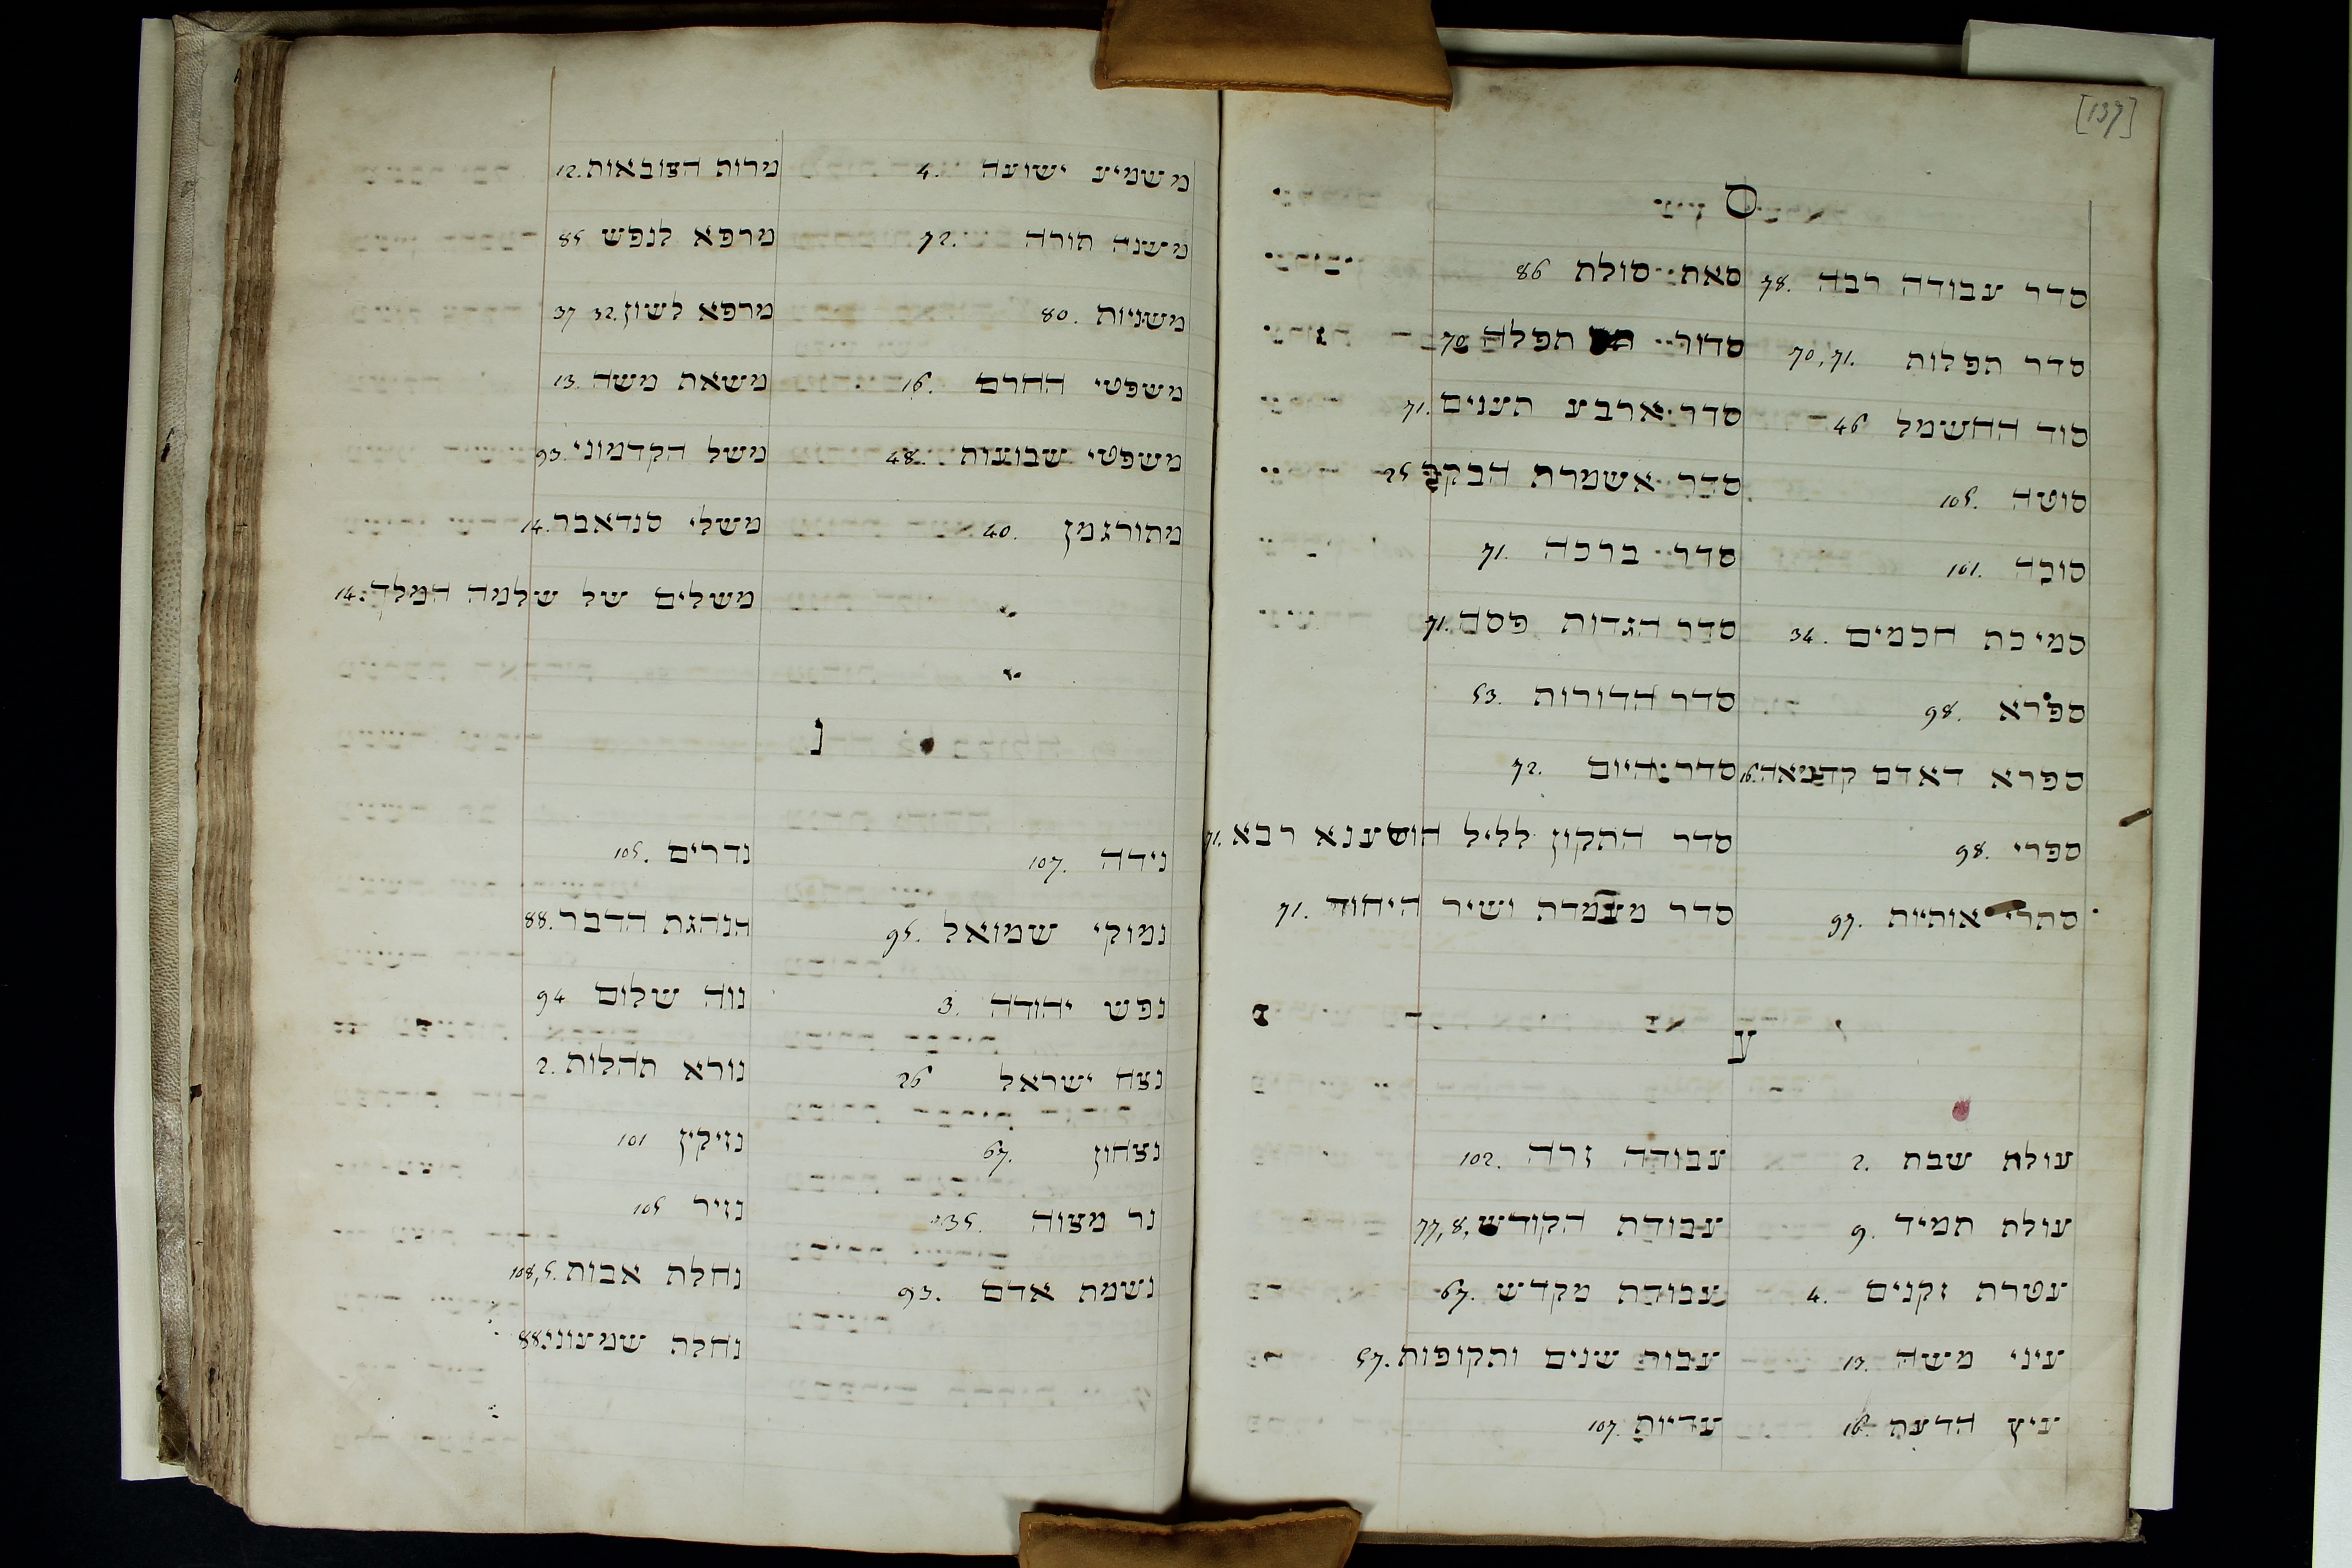 מירות הצובאות 12.
מרפא לנפש 85
מרפא לשון 32. 37
משאת משה 13.
משל הקדמוני 93.
משלי סנדאבר 14.
משלים של שלמה המלך: 14.
משמיע ישועה 4.
משנה תורה 72.
משניות 80.
משפטי החרם 16.
משפטי שבועות 48.
מתורגמן 40.
נ
נדרים 105.
הנהגת הדבר 88.
נוה שלום 94
נורא תהלות 2.
נזיקין 101
נזיר 105
נחלת אבות 108, 5.
נחלת שמעוני 88
נידה 107.
נמוקי שמואל 95.
נפש יהודה 3.
נצח ישראל 26
נצחון 67.
נר מצוה 35.
נשמת אדם 93.
[137]
ס
סאת סולת 86
סדור תפלה 70
סדר ארבע תענים 71.
סדר אשמרת הבקר 25
סדר ברכה 71.
סדר הגדות פסח 71.
סדר הדורות 53.
סדר היום 72.
סדר התקון לליל הושענא רבא 71.
סדר מעמדת ושיר היחוד 71.
סדר עבודה רבה 78.
סדר תפלות 70, 71.
סוד החשמל 46
סוטה 105.
סוכה 101.
סמיכת חכמים 34.
ספרא 98.
ספרא דאדם קדמאה 16.
ספרי 98.
סתרי אותיות 97.
ע
עבודה זרה 102.
עבודת הקודש 77, 8,
עבודת מקדש 67.
עבור שנים ותקופות 57.
עדיות 107.
עולת שבת 2.
עולת תמיד 9.
עטרת זקנים 4.
עיני משה 13.
עיץ הדעת 16.